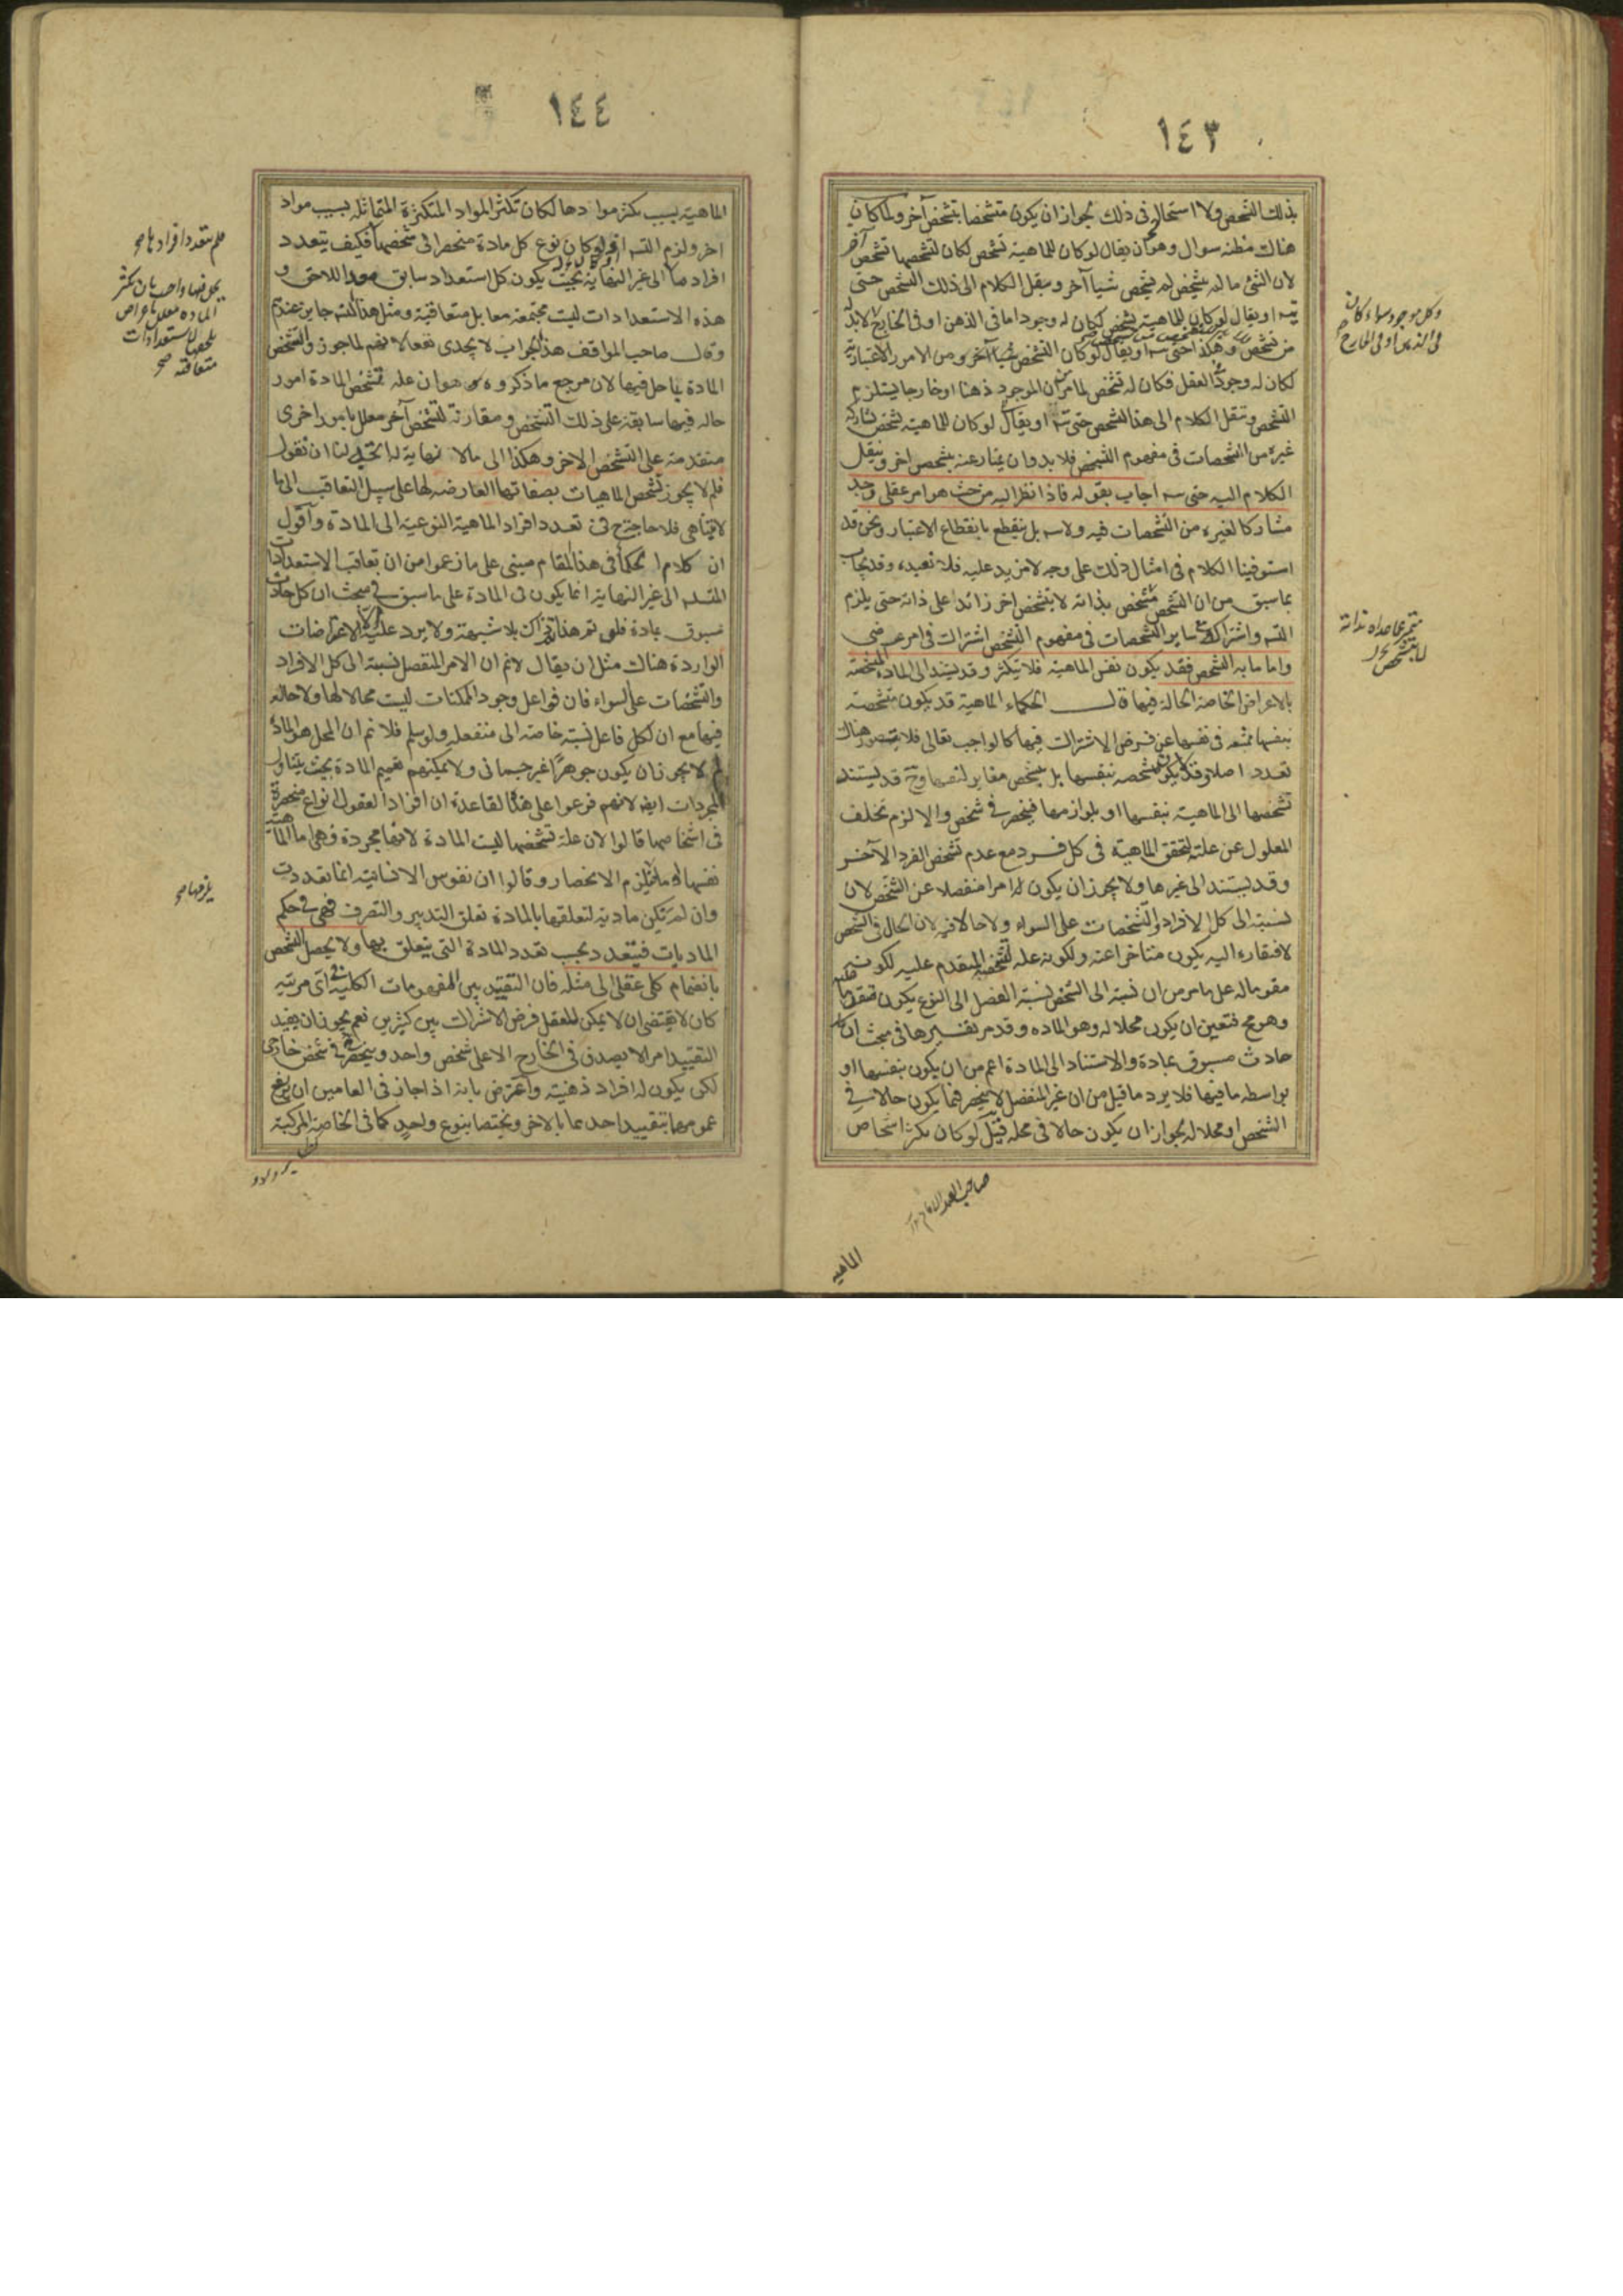 ١٤٣
بذلك التشخص ولا استحالة في ذلك لجواز ان يكون متشخصا بتشخص آخر ولما كان
هناك مظنه سوال وهو ان يقال لو كان للماهية تشخص لكان لتشخصها تشخص آخر
لان الشئ ما لم يتشخص لم يشخص شيا آخر وينقل الكلام الى ذلك التشخص حتى
يتسه او يقال لو كان للماهية تشخص لكان له وجود اما في الذهن او في الخارج لابد له
من تشخص وهكذا حتى يتسه او يقال لو كان التشخص شيا آخر ومن الامور الاعتبارية
لكان له وجود في العقل فكان له تشخص لما مر من ان الموجود ذهنا او خارجا يستلزم
التشخص وننقل الكلام الى هذا التشخص حتى يتسه او يقال لو كان للماهية تشخص لشاركه
غيره من التشخصات في مفهوم التشخص فلابد وان يمتاز عنه بتشخص اخر وينقل
الكلام اليه حتى يتسه اجاب بقوله فاذا نظر اليه من حيث هو امر عقلي وجد
مشاركا لغيره من التشخصات فيه ولا يتسه بل ينقطع بانقطاع الاعتبار ونحن قد
استوفينا الكلام في امثال ذلك على وجه لا مزيد عليه فلا نعيده وقد يجاب
بما سبق من ان التشخص متشخص بذاته لا بتشخص اخر زائدا على ذاته حتى يلزم
التسه واشتراكه مع ساير التشخصات في مفهوم التشخص اشتراك في امر عرضي
واما ما به التشخص فقد يكون نفس الماهية فلا تتكثر وقد يستند الى المادة المتشخصة
بالاعراض الخاصة الحالة فيها قالــ الحكماء الماهية قد يكون متشخصة
بنفسها ممتنعه في نفسها عن فرض الاشتراك فيها كالواجب تعالى فلا يتصور هناك
تعدد اصلا وقد لا يكون متشخصه بنفسها بل بتشخص مغاير لنفسها وح قد يستند
تشخصها الى الماهية بنفسها او بلوازمها فينحصر في شخص والا لزم تخلف
المعلول عن علته لتحقق الماهية في كل فــرد مع عدم تشخص الفرد الآخــر
وقد يستند الى غيرها ولا يجوز ان يكون له امرا منفصلا عن الشخص لان
نسبته الى كل الافراد والتشخصات على السواء ولا حالا فيه لان الحال في الشخص
لافتقاره اليه يكون متاخرا عنه ولكونه علة لتشخصه المتقدم عليه لكونه
مقوما له على ما مر من ان نسبة الى الشخص نسبة الفصل الى النوع يكون متقدما عليه
وهو مح فتعين ان يكون محلا له وهو الماده وقد مر تفسيرها في مبحث ان كل
حادث مسبوق بمادة والاستناد الى المادة اعم من ان يكون بنفسها او
بواسطه ما فيها فلا يرد ما قيل من ان غير المنفصل لا ينحصر فيما يكون حالا في
الشخص او محلا له لجواز ان يكون حالا في محله قيل لو كان تكثر اشخاص
الماهية
وكل موجود سواء كان
في الذهن او في الخارج
١٤٤
الماهية بسبب تكثر موادها لكان تكثر المواد المتكثرة المتماثلة بسبب مواد
اخر ولزم التسه اقول لو كان نوع كل مادة منحصرا في شخصها فكيف يتعدد
افرادها الى غير النهاية بحيث يكون كل استعداد سابق معدا للاحق و
هذه الاستعدادات ليست مجتمعه معا بل متعاقبة ومثل هذا التسه جايز عندهم
وقالــ صاحب المواقف هذا الجواب لا يجدى نفعا لانهم لما جوزوا تشخص
المادة بما حل فيها لان مرجع ما ذكروه هو ان علة تشخص المادة امور
حالة فيها سابقة على ذلك التشخص ومقارنة لتشخص آخر معلل بامور اخرى
متقدمة على التشخص الاخر وهكذا الى مالا نهاية له اتجه لنا ان نقول
فلم لا يجوز تشخص الماهيات بصفاتها العارضة لها على سبيل التعاقب الى ما
لا يتناهى فلا حاجة ح في تعدد افراد الماهية النوعية الى المادة واقول
ان كلام الحكماء في هذا المقام مبنى على ما زعموا من ان تعاقب الاستعدادات
المتسلسلة الى غير النهاية انما يكون في المادة على ما سبق في مبحث ان كل حادث
مسبوق بمادة فلو تم هذا تم ذاك بلا شبهة ولا يرد عليه الا الاعتراضات
الواردة هناك مثل ان يقال لا نم ان الامر المنفصل نسبته الى كل الافراد
والتشخصات على السواء فان فواعل وجود الممكنات ليست محالا لها ولا حالة
فيها مع ان لكل فاعل نسبة خاصة الى منفعله ولو سلم فلا نم ان المحل هو المادة
لم لا يجوز ان يكون جوهرا غير جسماني ولا يمكنهم تعميم المادة بحيث يتناول
المجردات ايضا لانهم فرعوا على هذه القاعدة ان افراد العقول انواع منحصرة
في اشخاصها قالوا لان علة تشخصها ليست المادة لانها مجردة فهي اما الماهية
نفسها او ما يلزمها فيلزم الانحصار وقالوا ان نفوس الانسانية انما تعددت
وان لم تكن مادية لتعلقها بالمادة تعلق التدبير والتصرف فهي في حكم
الماديات فيتعدد بحسب تعدد المادة التي يتعلق بها ولا يحصل التشخص
بانضمام كلى عقلي الى مثله فان التقييد بين المفهومات الكلية في اى مرتبة
كان لا يقتضى ان لا يمكن للعقل فرض الاشتراك بين كثيرين نعم يجوز ان يفيد
التقييد امرا لا يصدق في الخارج الا على شخص واحد وينحصر في شخص خارجي
لكن يكون له افراد ذهنية واعترض بانه اذا جاز في العامين ان يرتفع
عمومهما بتقييد احدهما بالاخر ويختصا بنوع واحد كما في الخاصة المركبة
فلم يتعدد افرادها صح
بحل فيها واجب بان تكثر
المادة معلل باعراض
تلحقها لاستعدادات
متعاقبة صح